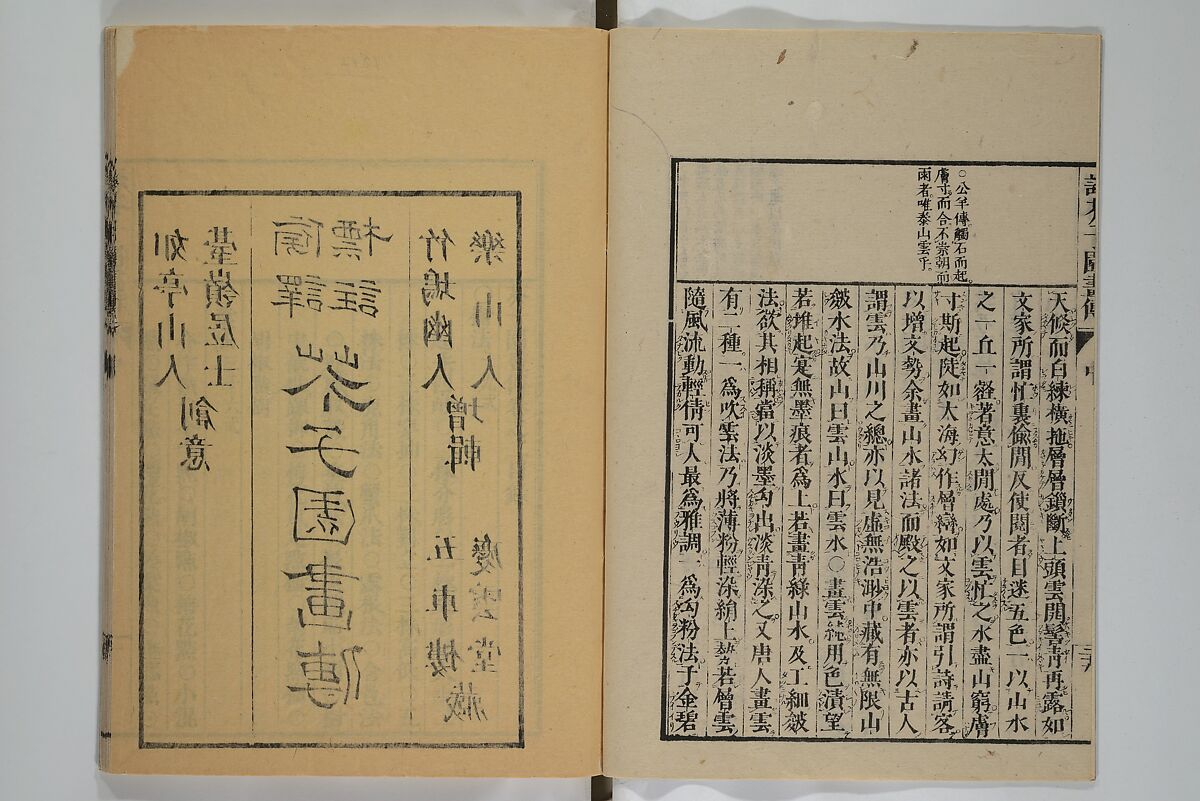 譯芥子園畫傳
中
○公羊傳觸石而起
膚寸而合不崇朝而
雨者唯泰山雲乎
天倏而白練橫拖層層鎖斷上頭雲開髻青再露如
文家所謂忙裏偸閒反使閱者目迷五色一以山水
之一丘一壑著意太閒處乃以雲忙之水盡山窮膚
寸斯起陡如大海幻作層巒如文家所謂引詩請客
以增文勢余畫山水諸法而殿之以雲者亦以古人
謂雲乃山川之總亦以見虛無浩渺中藏有無限山
皴水法故山曰雲山水曰雲水○畫雲純用色漬望
若堆起寔無墨痕者爲上若畫靑綠山水及工細皴
法欲其相稱當以淡墨勾出淡靑染之又唐人畫雲
有二種一爲吹雲法乃將薄粉輕染絹上勢若層雲
隨風流動輕倩可人最爲雅調一爲勾粉法于金碧
如亭山人
臺嶺居士 創意
標註
傍譯
芥子園畫傳
竹塢幽人
樂山人 增輯
五車樓
慶雲堂 藏